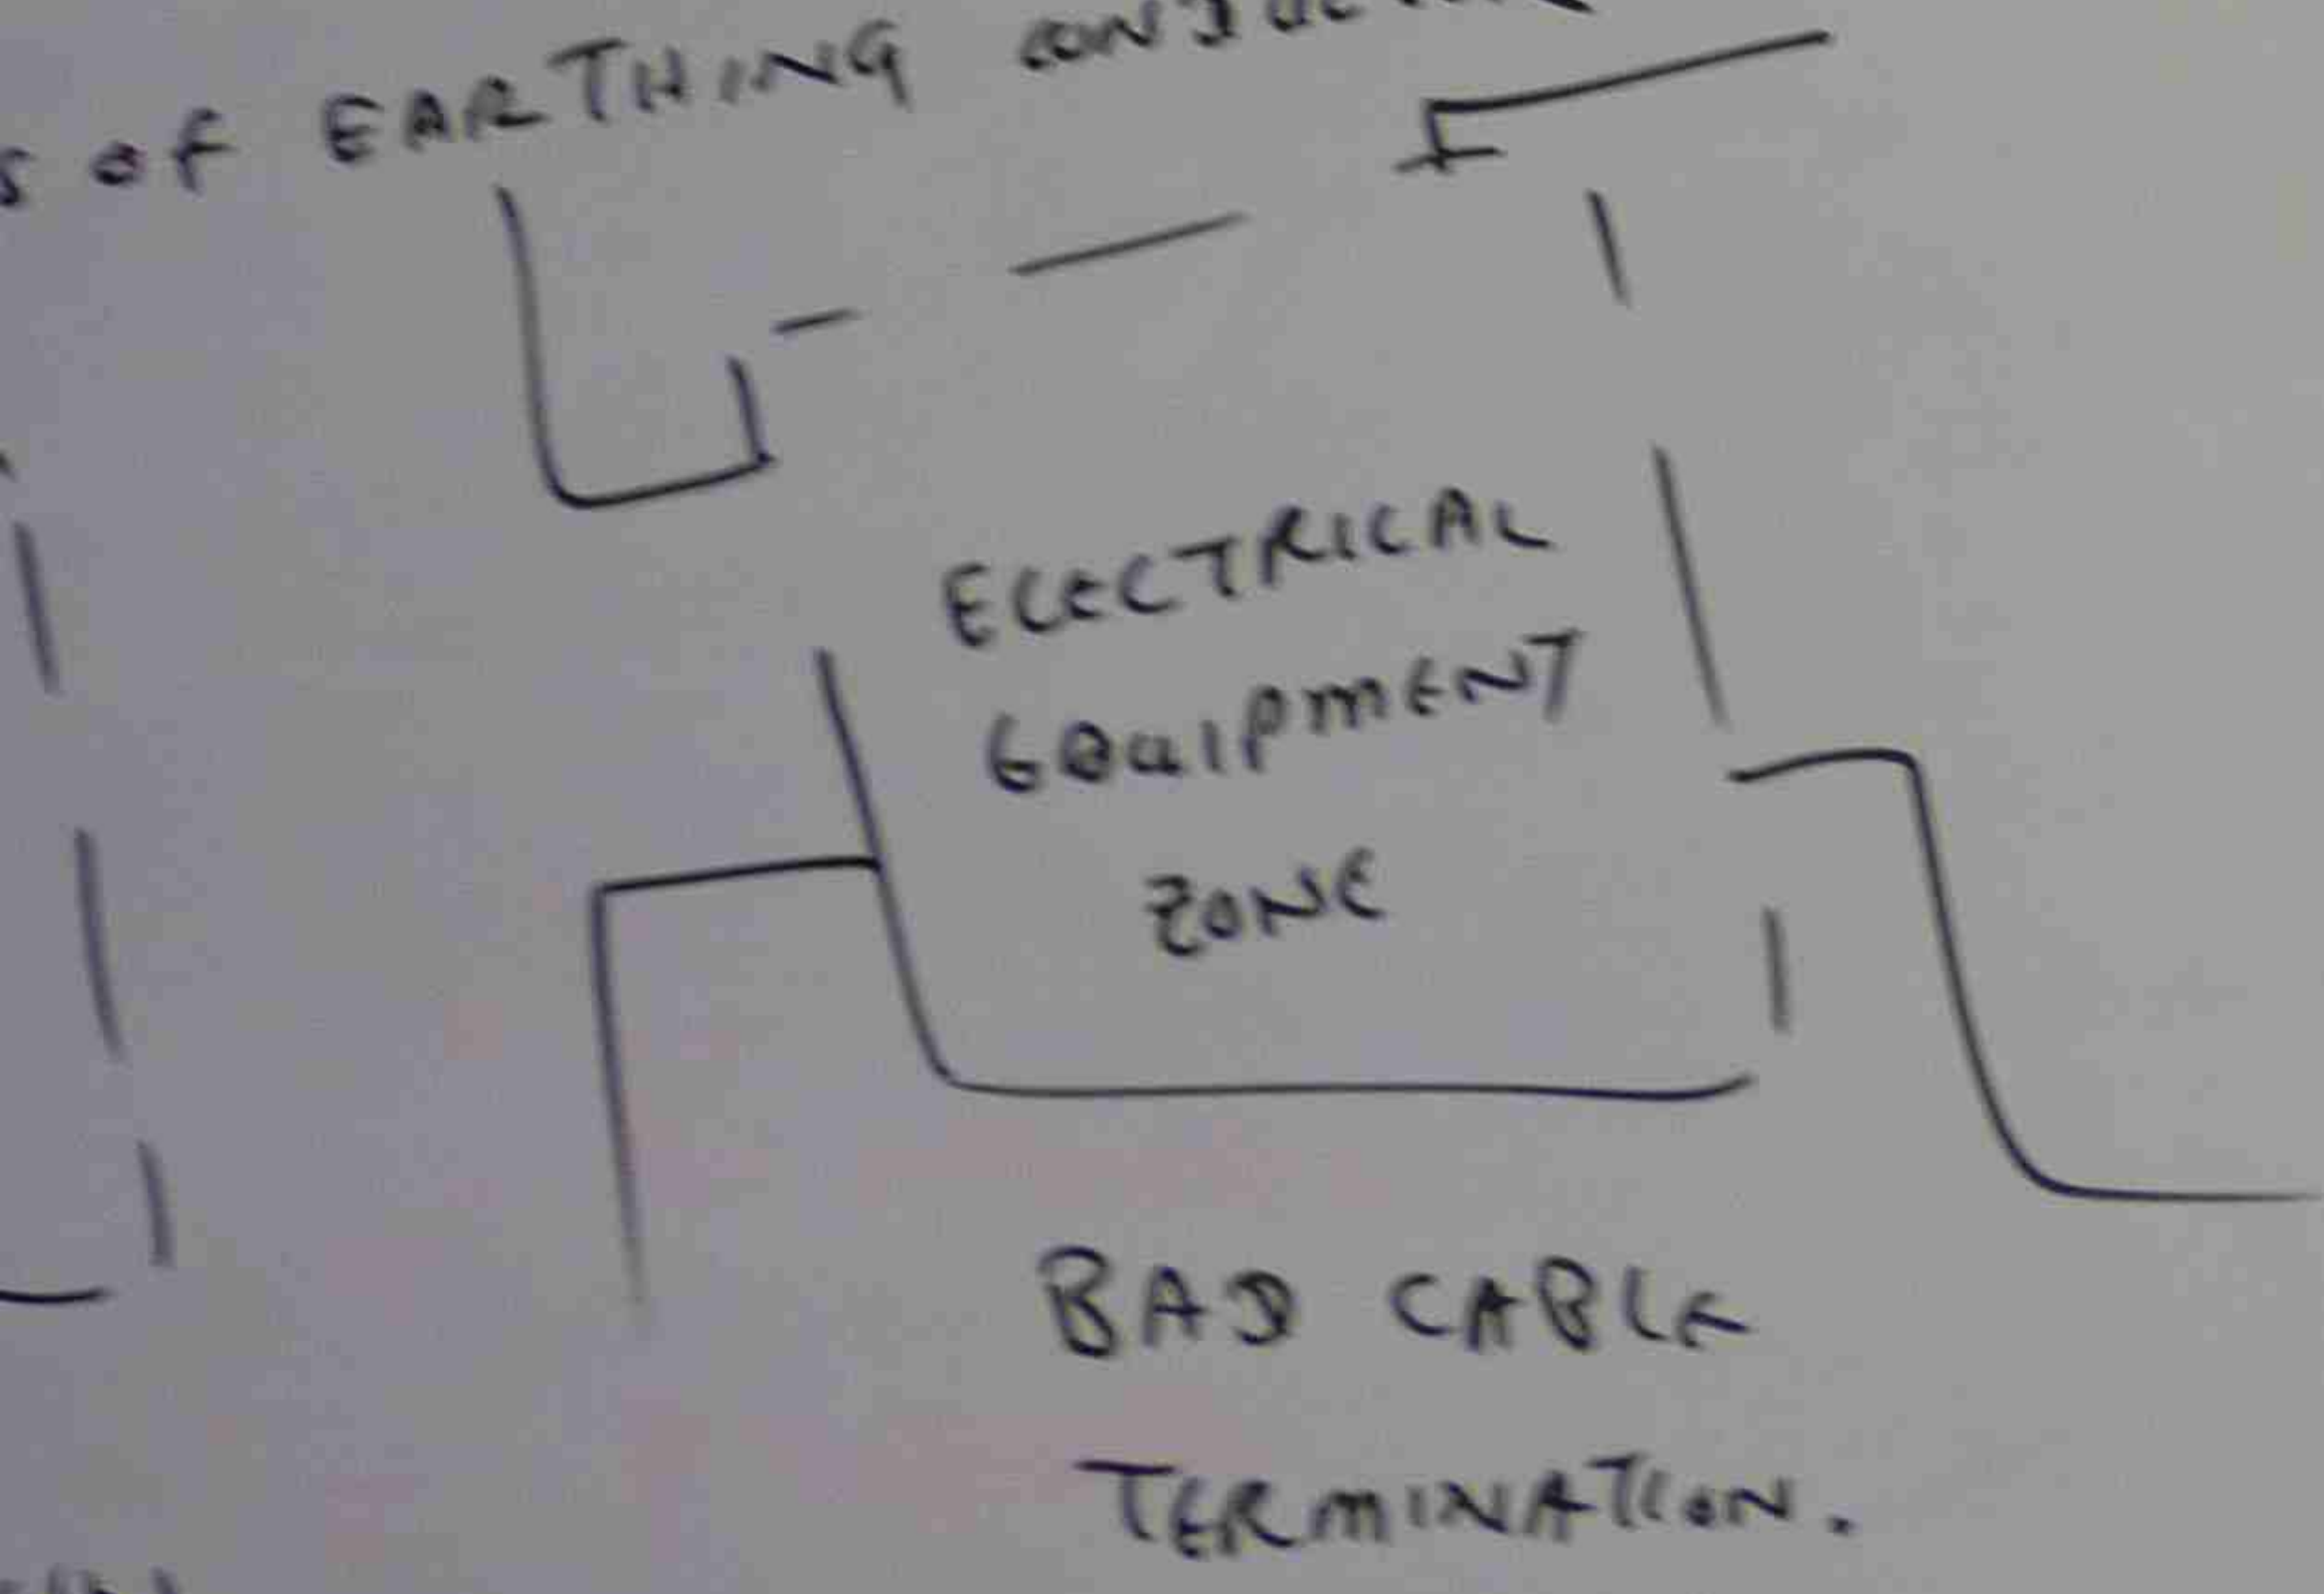 of EARTHING
ELECTRICAL
EQUIPMENT
ZONE
BAD CABLE
TERMINATION.